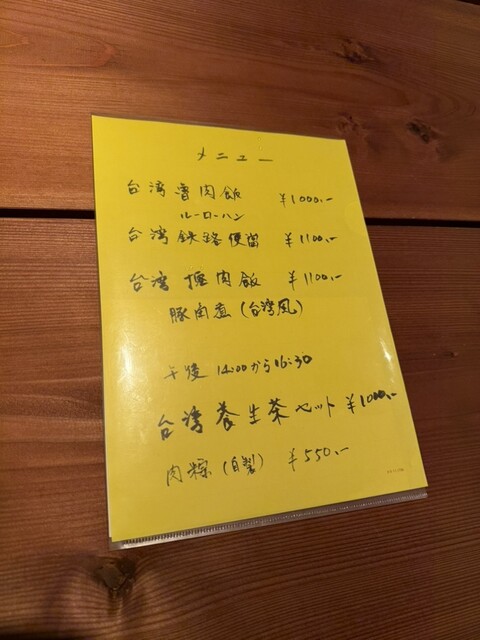 メニュー
台湾魯肉飯 ¥1000.-
ルーローハン
台湾鉄路便當 ¥1100.-
台湾焢肉飯 ¥1100.-
豚肉煮(台湾風)
午後 14:00から16:30
台湾養生茶セット ¥1000.-
肉粽(自製) ¥550.-